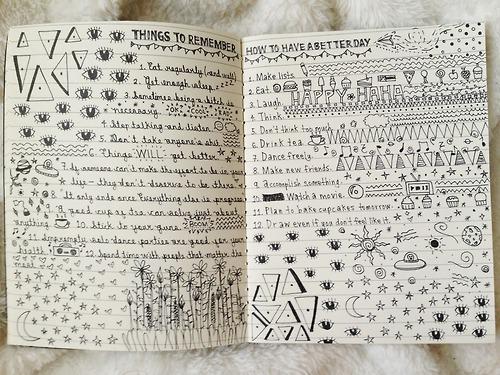 THINGS TO REMEMBER
1. Eat regularly (and well)
2. Get enough sleep zzz
3. Sometimes being a bitch is
necessary.
4. Stop talking and listen
5. Don't take anyone's shit.
6. Things WILL get better.
7. If someone can't make the effort to be in your
life - they don't deserve to be there.
8. It only ends once
9. A good cup of tea can solve just about
anything. 10. Stick to your guns. BOOM!
11. Impromptu solo dance parties are good for your
health. 12. Spend time with people that matter the
most.
HOW TO HAVE A BETTER DAY
1. Make lists.
2. Eat
3. Laugh. HAPPY HAHA
4. Think.
5. Don't think too much.
6. Drink tea.
7. Dance freely.
8. Make new friends.
9. Accomplish something.
Watch a movie.
11. Plan to bake cupcakes tomorrow.
12. Draw even if you don't feel like it.